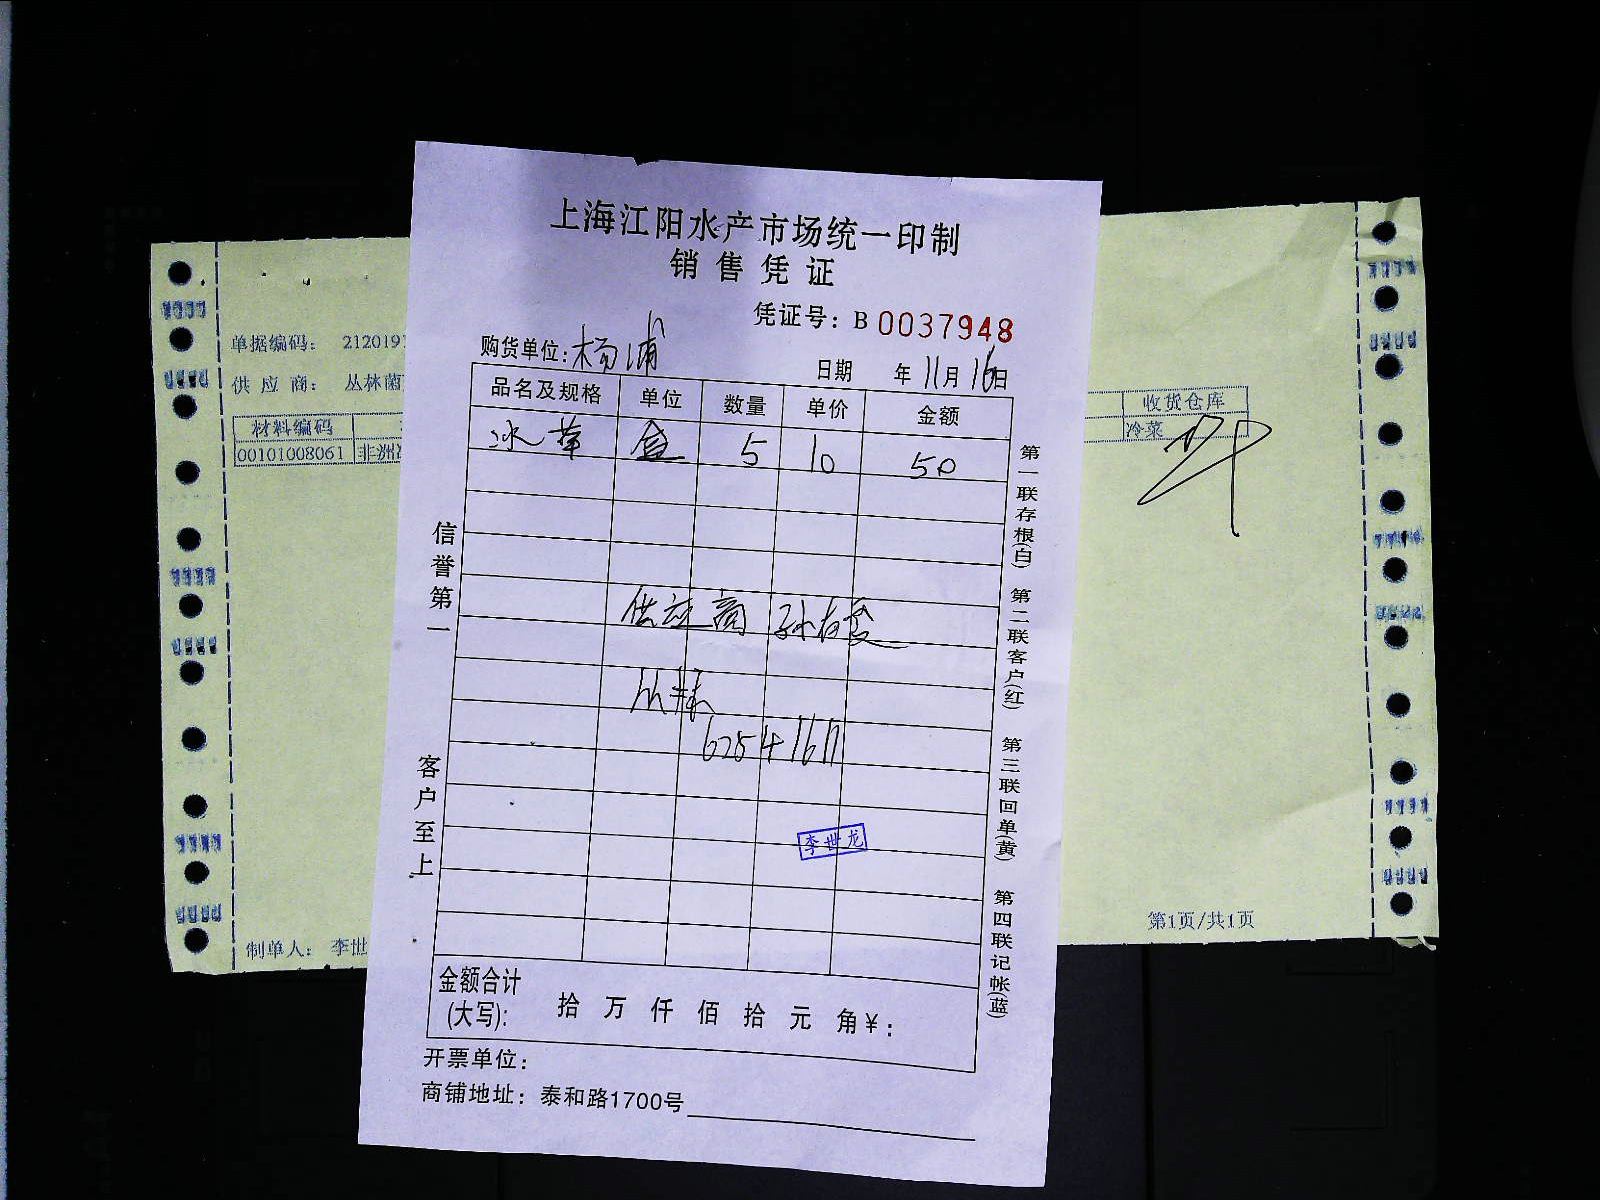 上海江阳水产市场统一印制
销售凭证
凭证号：B 0037948
购货单位：杨浦
日期 年11月16日
品名及规格 单位 数量 单价 金额
冰草 盒 5 10 50
供应商 孙有
丛林
信誉第一
客户至上
李世龙
第一联存根(白) 第二联客户(红) 第三联回单(黄) 第四联记帐(蓝)
金额合计
(大写)： 拾 万 仟 佰 拾 元 角 ¥：
开票单位：
商铺地址：泰和路1700号
单据编码： 2120191
供应商： 丛林菌
材料编码
00101008061 非洲
制单人： 李世
收货仓库
冷菜
第1页/共1页